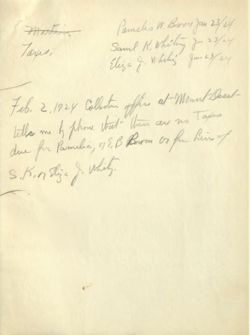 Taxes,
Pamelia W. Bowe Jan 23/24
Saml K. Whiting Jan 23/24
Eliza J. Whiting Jan 23/24
Feb. 2, 1924 Collectors office at Mount Desert
tells me by phone that there are no Taxes
due for Pamelia, or E B Bowen or for Eliza of
S. K. or Eliza J. Whiting.